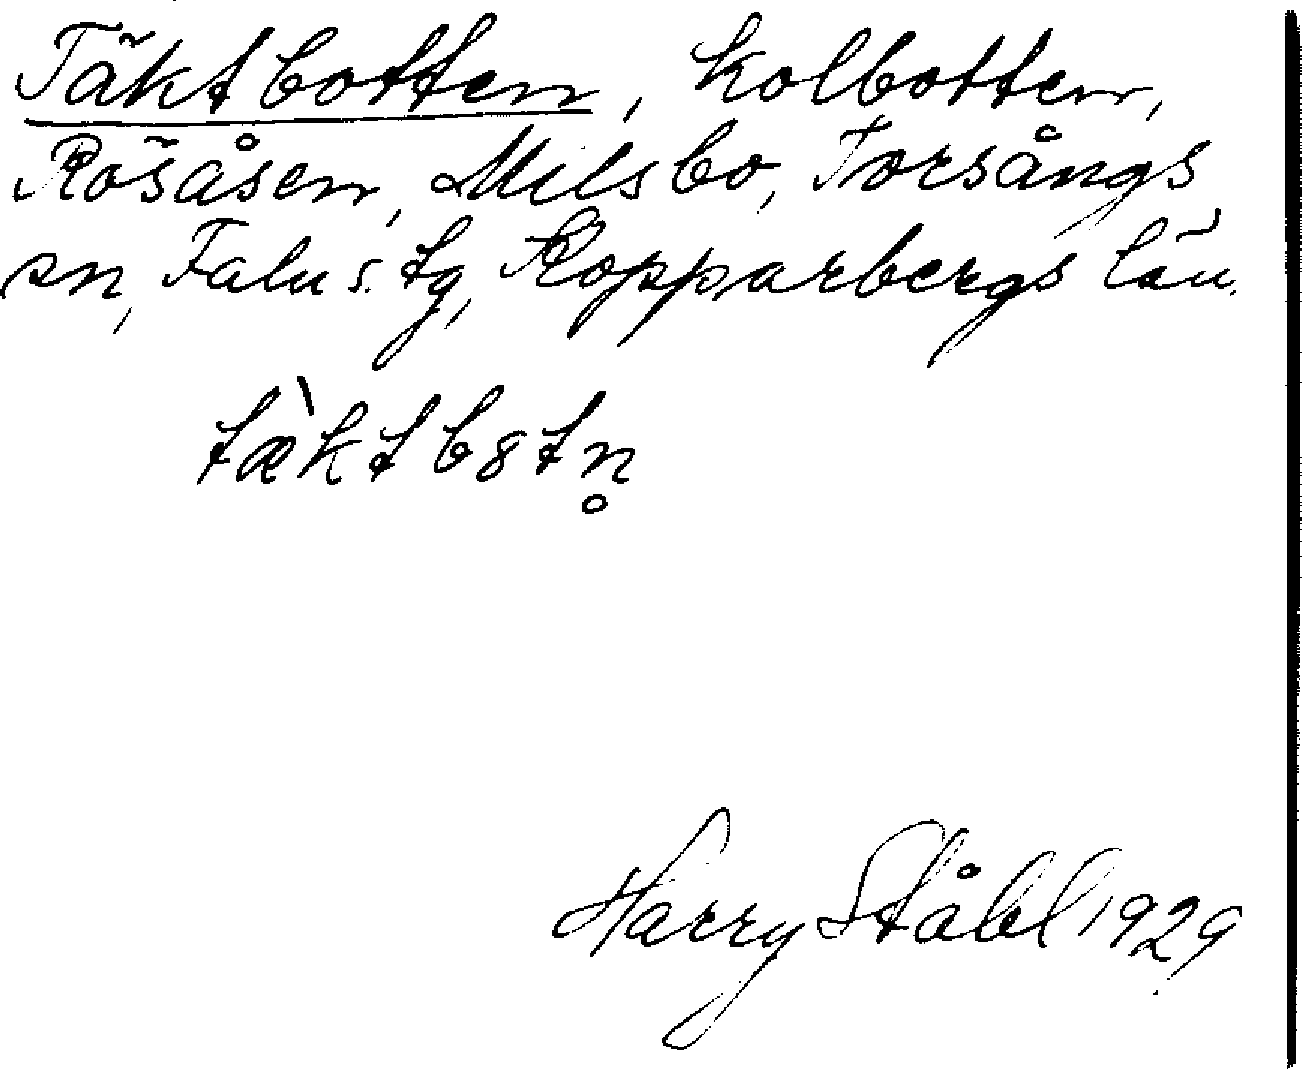 Täktbotten, kolbotten,
Rösåsen, Milsbo, Torsångs
sn, Falu s. tg, Kopparbergs län.
tæ̀ktb8tn̥
Harry Ståhl 1929